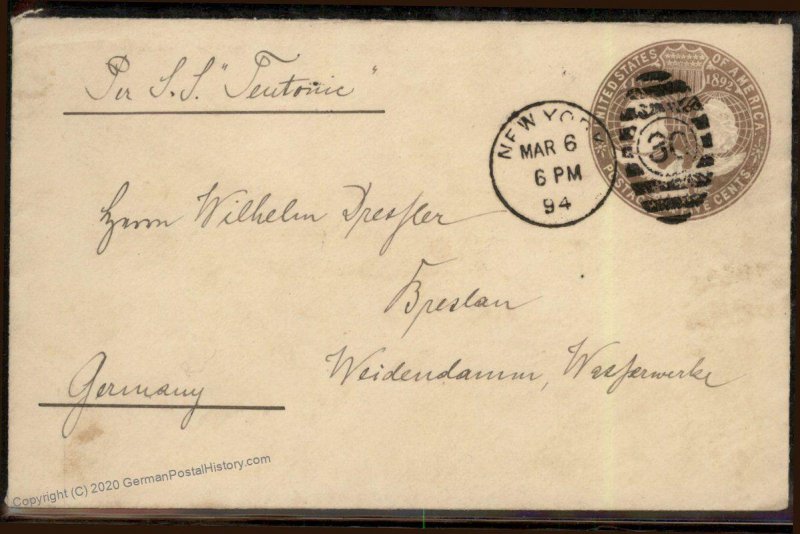 Per S.S. "Teutonic"
UNITED STATES OF AMERICA
1892
POSTAGE FIVE CENTS
NEW YORK
MAR 6
6 PM
94
Herrn Wilhelm Dressler
Breslau
Weidendamm, Wasserwerke
Germany
Copyright (C) 2020 GermanPostalHistory.com